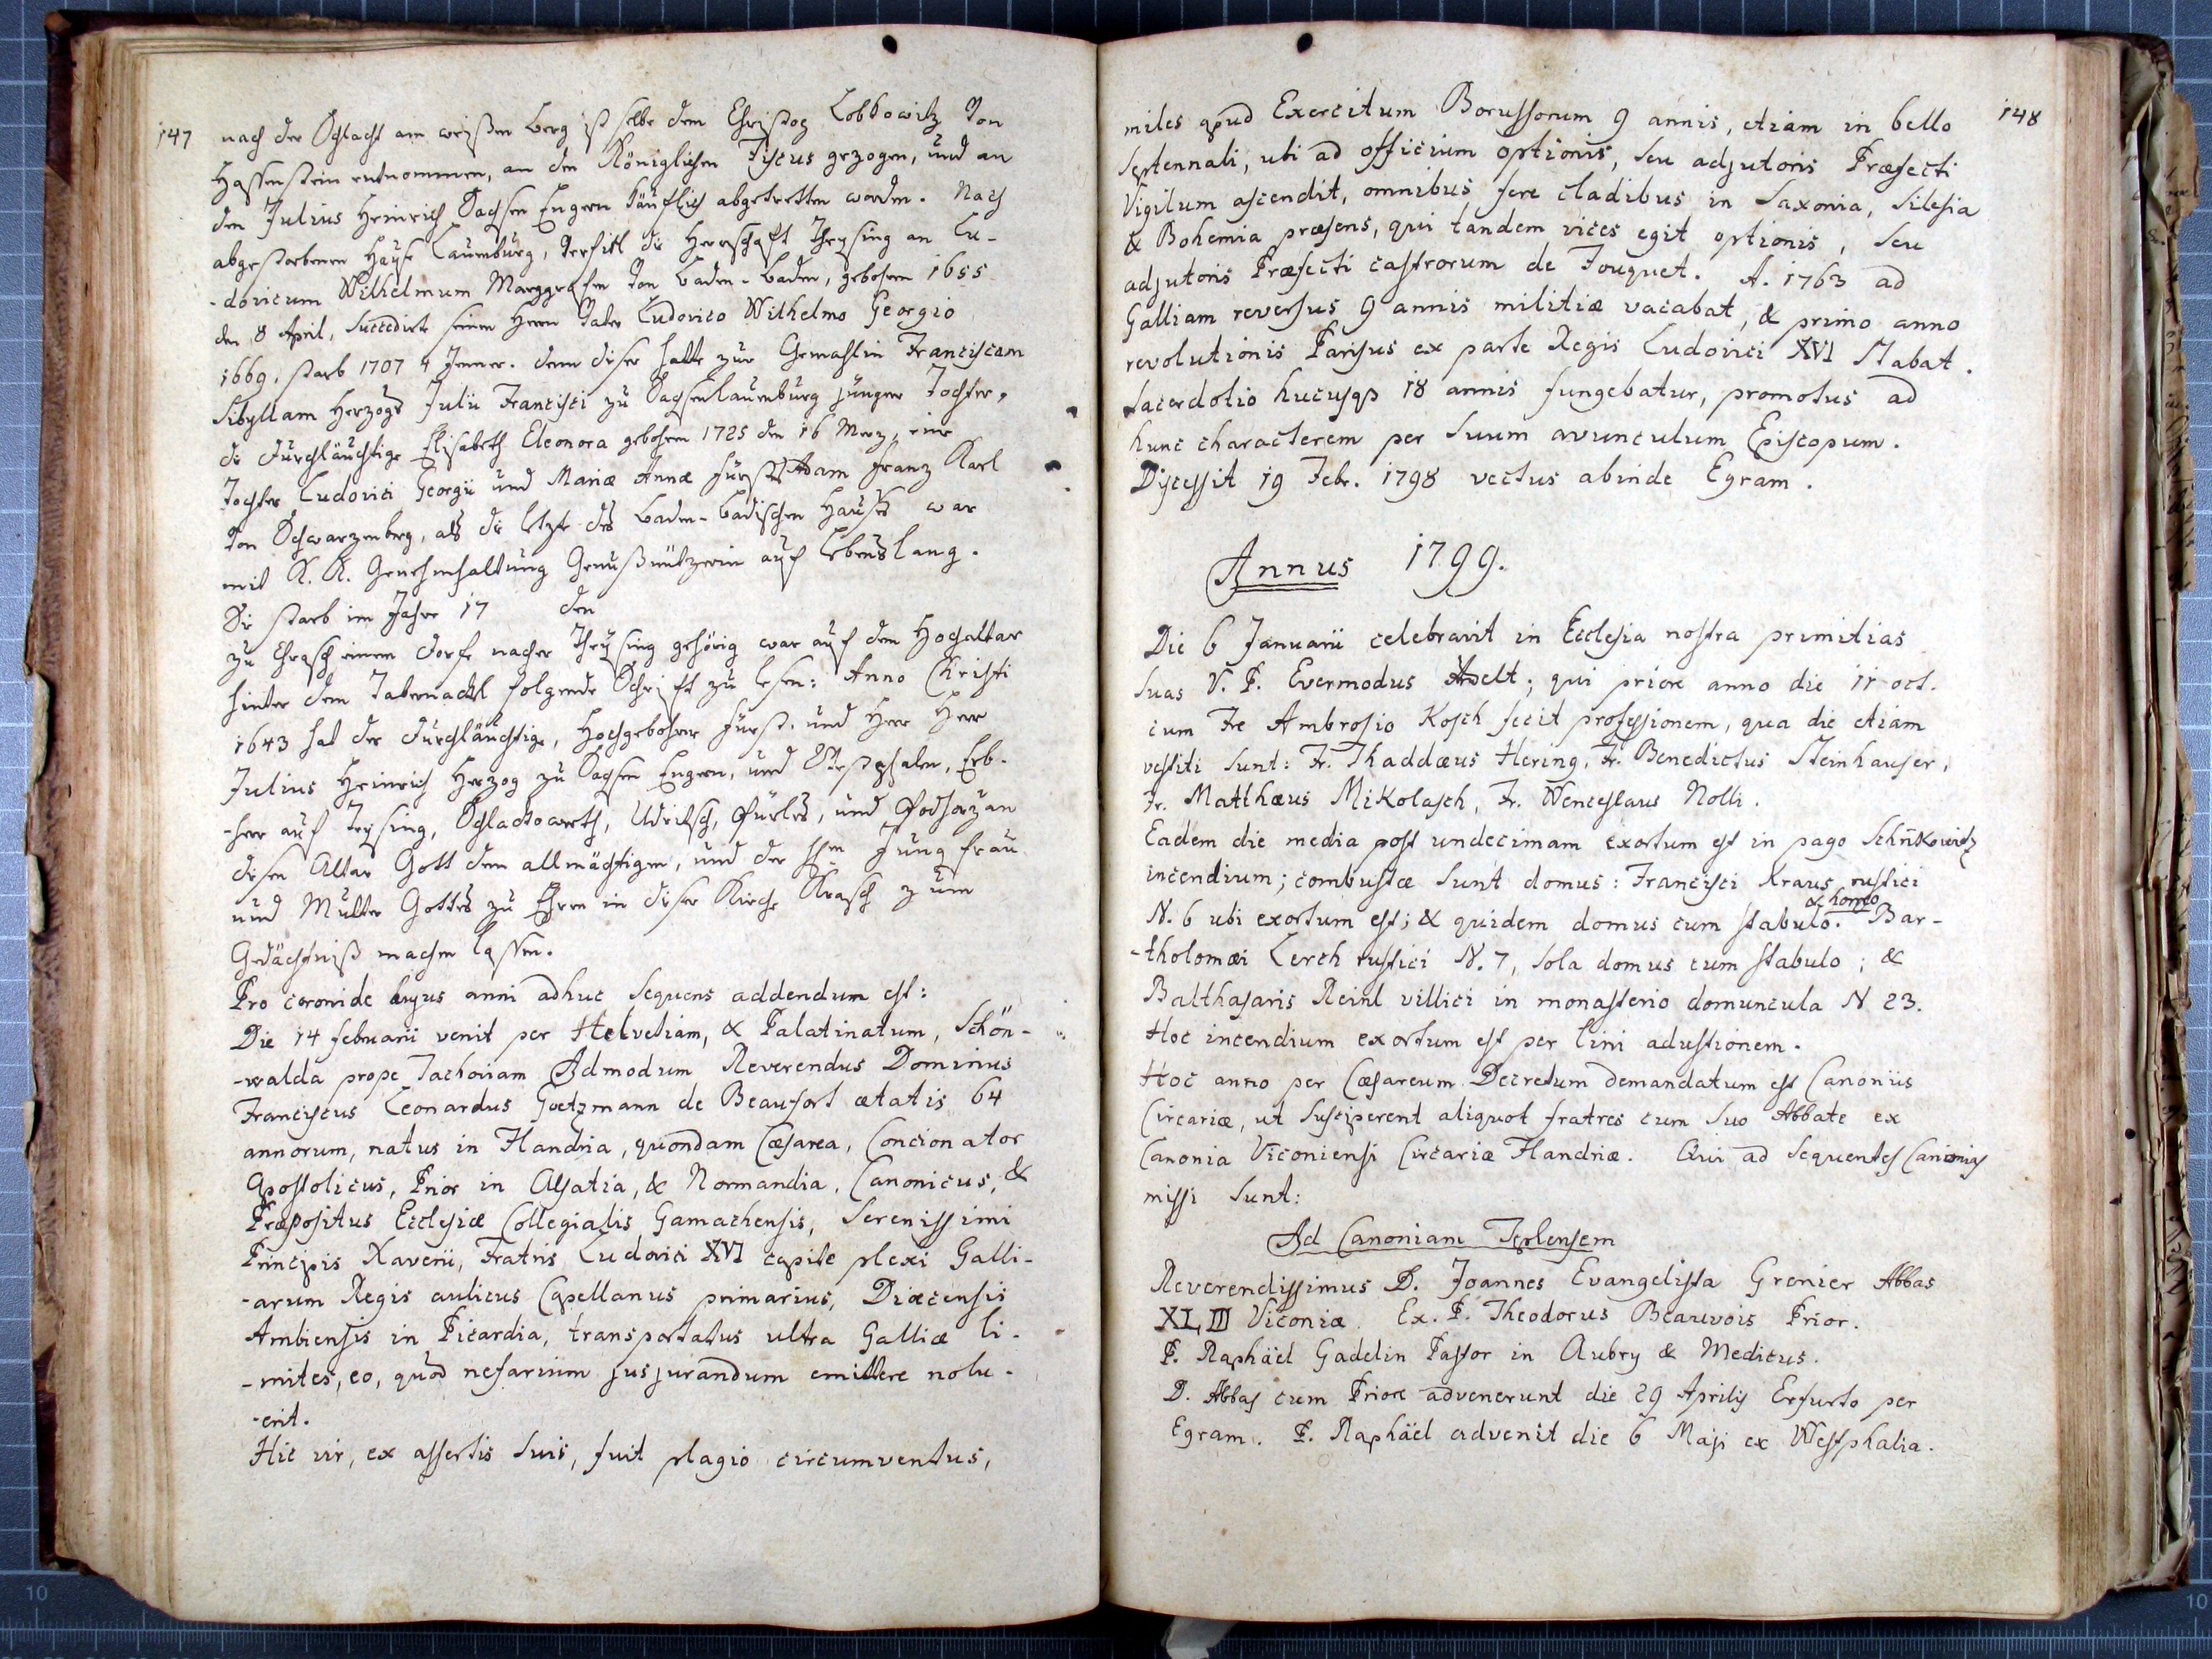 147
nach der Schlacht am weißen Berg ist selbe dem Christop Lobkowitz von
Hassenstein entnommen, an den Königlichen Fiscus gezogen, und an
den Julius Heinrich Sachsen Engern käuflich abgetretten worden. Nach
abgestorbenen Hause Lauenburg, verfiel die Herrschaft Theysing an Lu-
-dovicum Wilhelmum Marggrafen von Baaden-Baaden, gebohren 1655
den 8 April, succedirte seinem Herrn Vater Ludovico Wilhelmo Georgio
1669, starb 1707 4 Jenner. denn dieser hatte zur Gemahlin Franciscam
Sibyllam Herzogs Julii Francisci zu Sachsenlauenburg jünger Tochter,
die durchläuchtige Elisabeth Eleonora gebohren 1725 den 16 Merz, eine
Tochter Ludovici Georgii und Mariæ Annæ Fürsts Adam Franz Karl
von Schwarzenberg, als die letzte des Baaden-Badischen Hauses war
mit K. K. Genehmhaltung Genußnützerin auf Lebenslang.
Sie starb im Jahre 17 den
zu Chrasch einem Dorfe nacher Theysing gehörig war auf dem Hochaltar
hinter dem Tabernackl folgende Schrift zu lesen: Anno Christi
1643 hat der durchläuchtige, Hochgebohrne Fürst und Herr Herr
Julius Heinrich Herzog zu Sachsen Engern, und Westphalen, Erb-
-herr auf Teysing, Schlackowerth, Udritsch, Purles, und Podhorzan
disen Altar Gott dem allmächtigen, und der Hhen Jungfrau
und Mutter Gottes zu Ehren in diser Kirche Krasch zum
Gedächtniß machen lassen.
Pro coronide hujus anni adhuc sequens addendum est:
Die 14 februarii venit per Helvetiam, & Palatinatum, Schön-
-walda prope Tachoviam Admodum Reverendus Dominus
Franciscus Leonardus Goetzmann de Beaufort ætatis 64
annorum, natus in Flandria, quondam Cæsarea, Concionator
Apostolicus, Prior in Alsatia, & Normandia, Canonicus, &
Præpositus Ecclesiæ Collegialis Gamachensis, Serenissimi
Principis Xaverii, Fratris Ludovici XVI capite plexi Galli-
-arum Regis aulicus Capellanus primarius, Diæcensis
Ambiensis in Picardia, transportatus ultra Galliæ li-
-mites, eo, quod nefarium jusjurandum emittere nolu-
-erit.
Hic vir, ex assertis suis, fuit plagio circumventus,
148
miles apud Exercitum Borussorum 9 annis, etiam in bello
septennali, ubi ad officium optionis, seu adjutoris Præfecti
Vigilum ascendit, omnibus fere cladibus in Saxonia, Silesia
& Bohemia præsens, qui tandem vices egit optionis, seu
adjutoris Præfecti castrorum de Fouquet. A. 1763 ad
Galliam reversus 9 annis militiæ vacabat, & primo anno
revolutionis Parisus ex parte Regis Ludovici XVI stabat.
Sacerdotio hucusqs 18 annis fungebatur, promotus ad
hunc characterem per suum avunculum Episcopum.
Discessit 19 Febr. 1798 vectus abinde Egram.
Annus 1799.
Die 6 Januarii celebravit in Ecclesia nostra primitias
suas V. P. Evermodus Adelt; qui priore anno die 11 oct.
cum Fre Ambrosio Kosch fecit professionem, qua die etiam
vestiti sunt: Fr. Thaddæus Hering, Fr. Benedictus Steinhauser,
Fr. Matthæus Mikolasch, Fr. Wenceslaus Nolli.
Eadem die media post undecimam exortum est in pago Schrikowitz
incendium; combustæ sunt domus: Francisci Kraus rustici
N. 6 ubi exortum est; & quidem domus cum stabulo & horreo. Bar-
-tholomæi Lerch rustici N. 7, sola domus cum stabulo; &
Balthasaris Reinl villici in monasterio domuncula N 23.
Hoc incendium exortum est per lini adustionem.
Hoc anno per Cæsareum Decretum demandatum est Canoniis
Circariæ, ut susciperent aliquot fratres cum suo Abbate ex
Canonia Viconiensi Circariæ Flandriæ. Qui ad sequentes Canonias
missi sunt:
Ad Canoniam Teplensem
Reverendissimus D. Joannes Evangelista Grenier Abbas
XLIII Viconiæ. Ex. P. Theodorus Beauvois Prior.
P. Raphäel Gadelin Pastor in Aubry & Medicus.
D. Abbas cum Priore advenerunt die 29 Aprilis Erfurto per
Egram. P. Raphäel advenit die 6 Maji ex Westphalia.
10
10